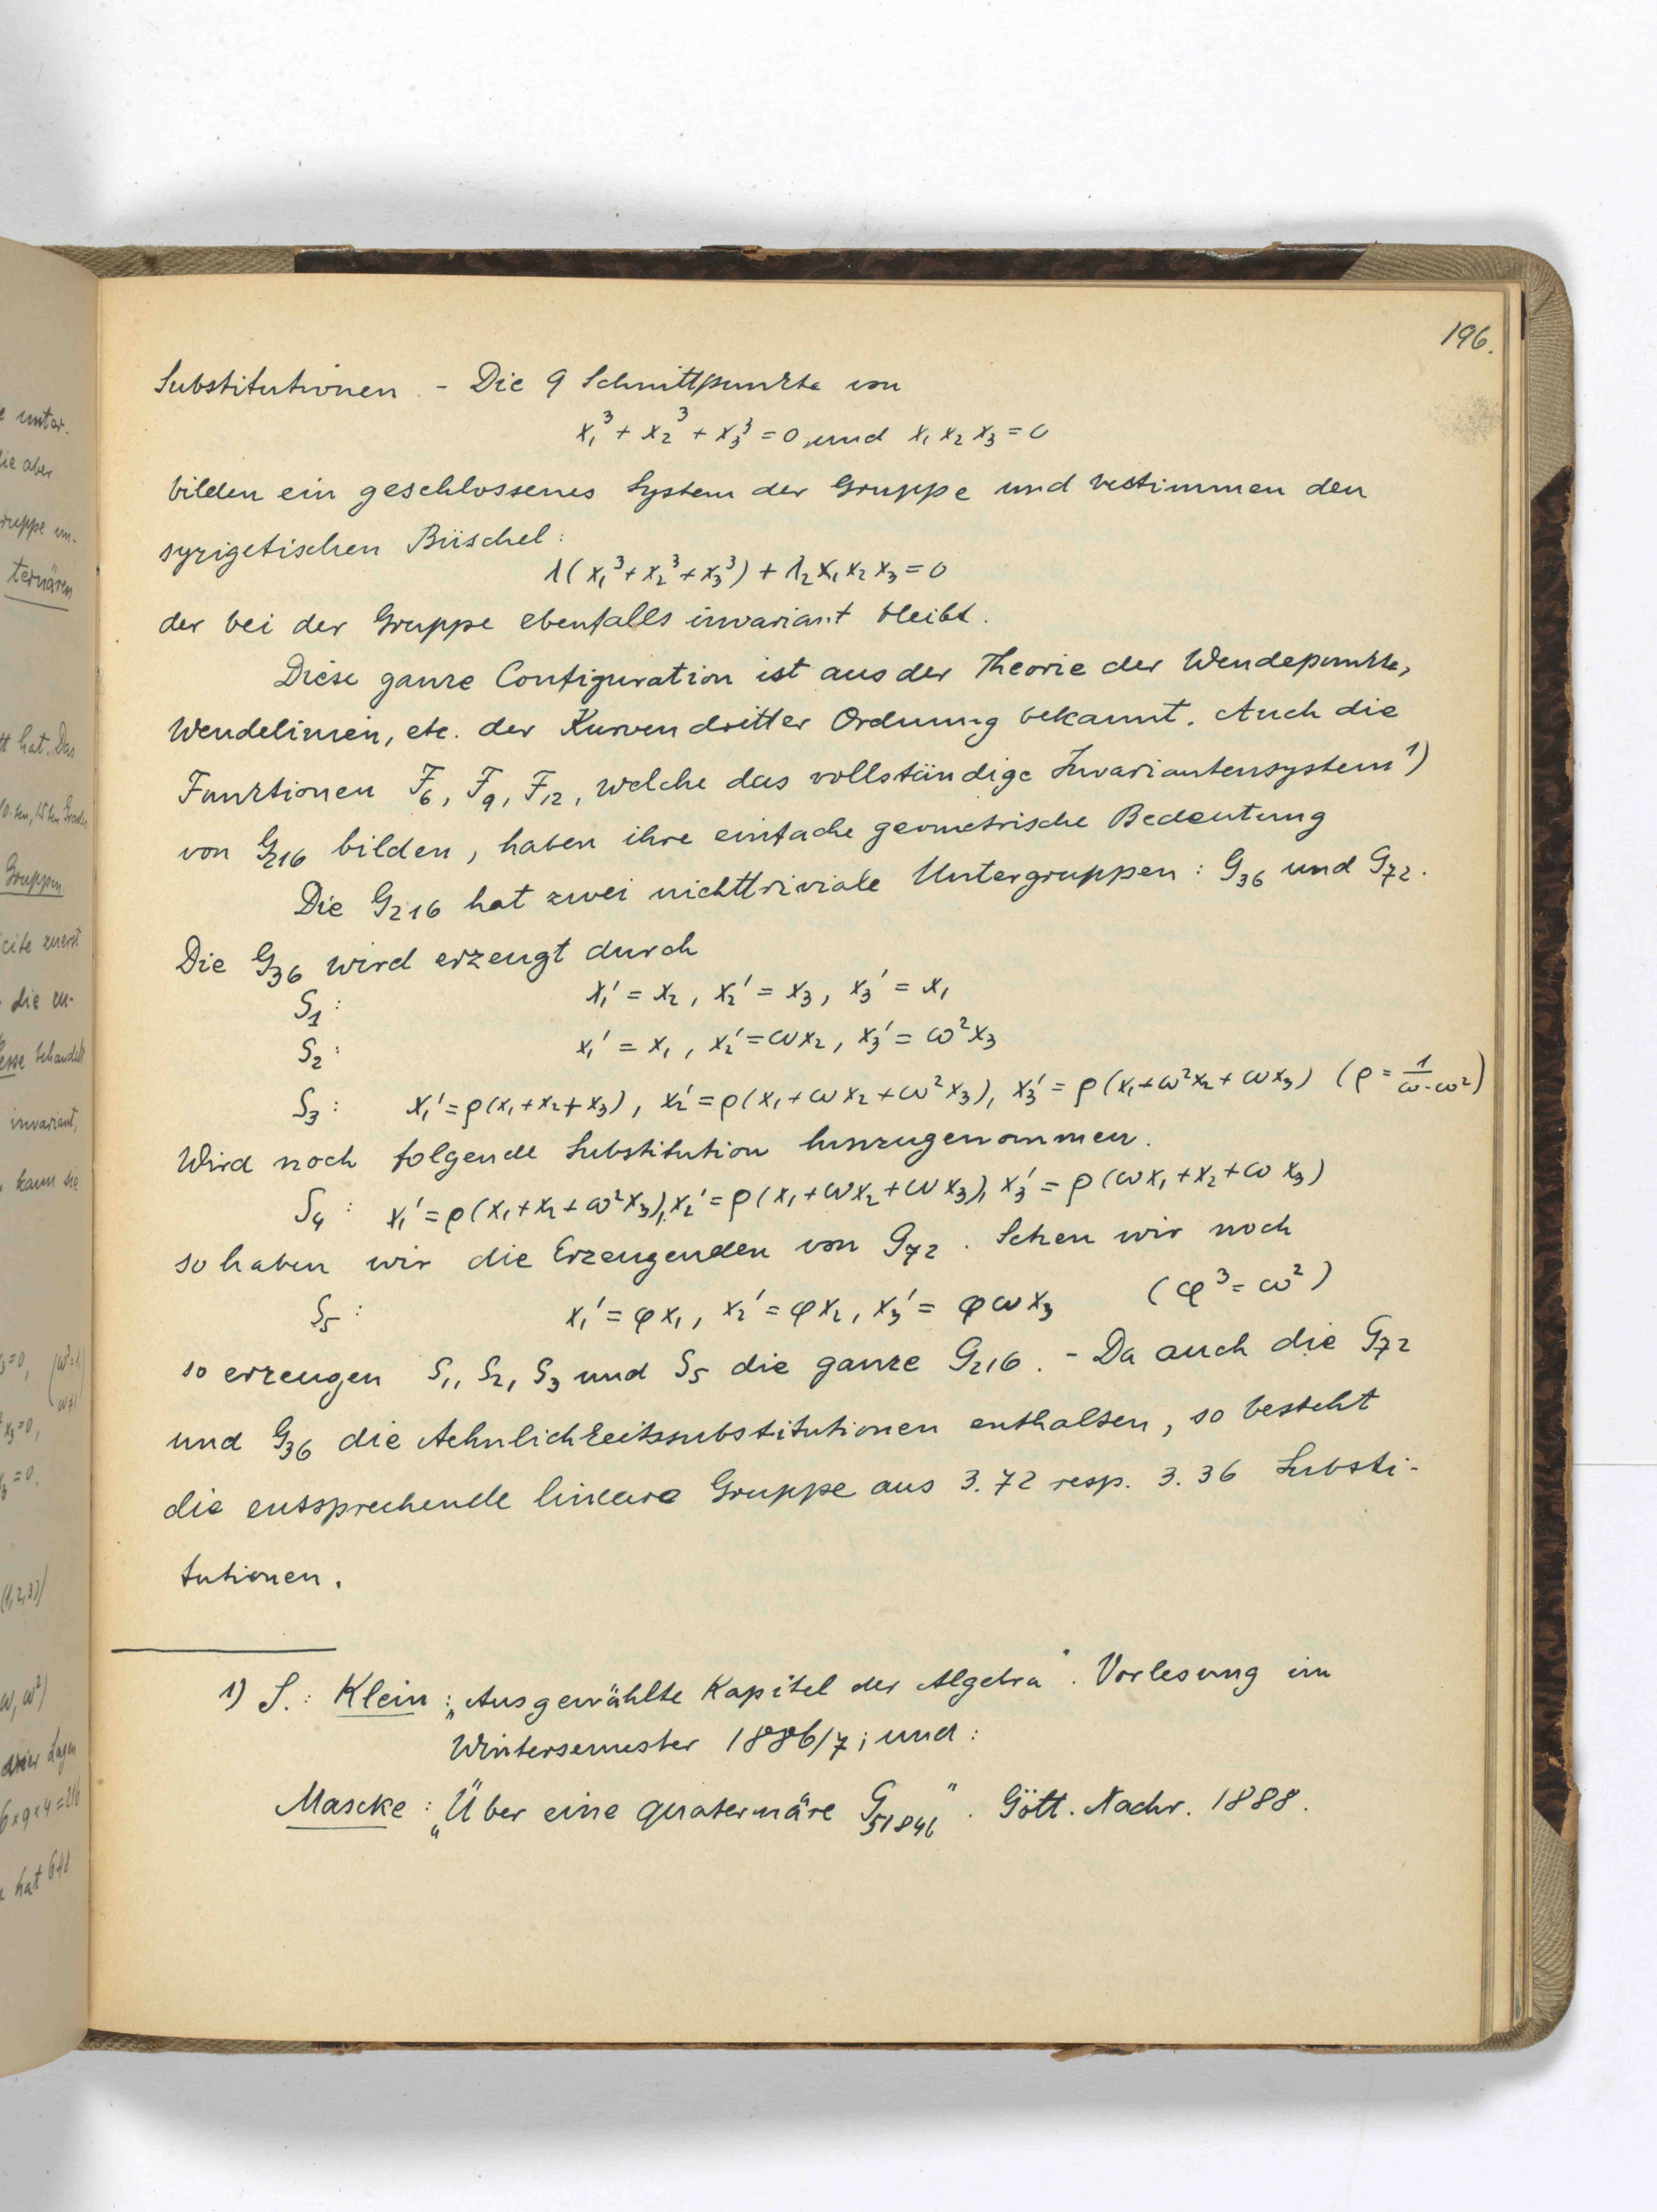 196.
Substitutionen. - Die 9 Schnittpunkte von
x₁³ + x₂³ + x₃³ = 0, und x₁ x₂ x₃ = 0
bilden ein geschlossenes System der Gruppe und bestimmen den
syzigetischen Büschel:
λ(x₁³ + x₂³ + x₃³) + λ₂ x₁ x₂ x₃ = 0
der bei der Gruppe ebenfalls invariant bleibt.
Diese ganze Configuration ist aus der Theorie der Wendepunkte,
Wendelinien, etc. der Kurven dritter Ordnung bekannt. Auch die
Funktionen F₆, F₉, F₁₂, welche das vollständige Invariantensystem ¹)
von G₂₁₆ bilden, haben ihre einfache geometrische Bedeutung
Die G₂₁₆ hat zwei nichttriviale Untergruppen: G₃₆ und G₇₂.
Die G₃₆ wird erzeugt durch
S₁: x₁' = x₂, x₂' = x₃, x₃' = x₁
S₂: x₁' = x₁, x₂' = ωx₂, x₃' = ω²x₃
S₃: x₁' = ρ(x₁+x₂+x₃), x₂' = ρ(x₁+ωx₂+ω²x₃), x₃' = ρ(x₁+ω²x₂+ωx₃) (ρ = 1/(ω-ω²))
Wird noch folgende Substitution hinzugenommen.
S₄: x₁' = ρ(x₁+x₂+ω²x₃), x₂' = ρ(x₁+ωx₂+ωx₃), x₃' = ρ(ωx₁+x₂+ωx₃)
so haben wir die Erzeugenden von G₇₂. Setzen wir noch
S₅: x₁' = φx₁, x₂' = φx₂, x₃' = φωx₃ (φ³ = ω²)
so erzeugen S₁, S₂, S₃ und S₅ die ganze G₂₁₆. - Da auch die G₇₂
und G₃₆ die Aehnlichkeitssubstitutionen enthalten, so besteht
die entsprechende lineare Gruppe aus 3.72 resp. 3.36 Substi-
tutionen.
1) S.: Klein: „Ausgewählte Kapitel der Algebra". Vorlesung im
Wintersemester 1886/7; und:
Mascke: „Über eine quaternäre G₅₁₈₄₆". Gött. Nachr. 1888.